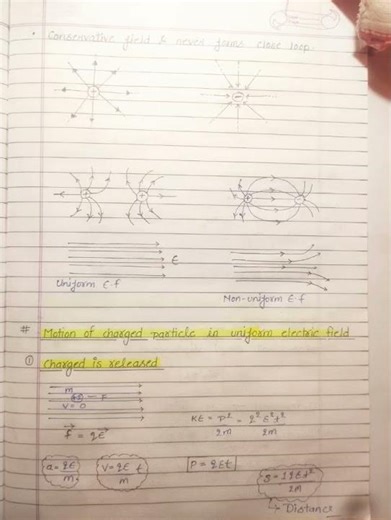 • Conservative field & never forms close loop.
+
−
+ +
+ −
E
Uniform E.f
Non-uniform E.f
# Motion of charged particle in uniform electric field
① Charged is released
m
+ → F
V = 0
KE = P²/2m = q²E²t²/2m
F⃗ = qE⃗
a = qE/m
V = qE/m t
P = qEt
S = 1qEt²/2m
→ Distance